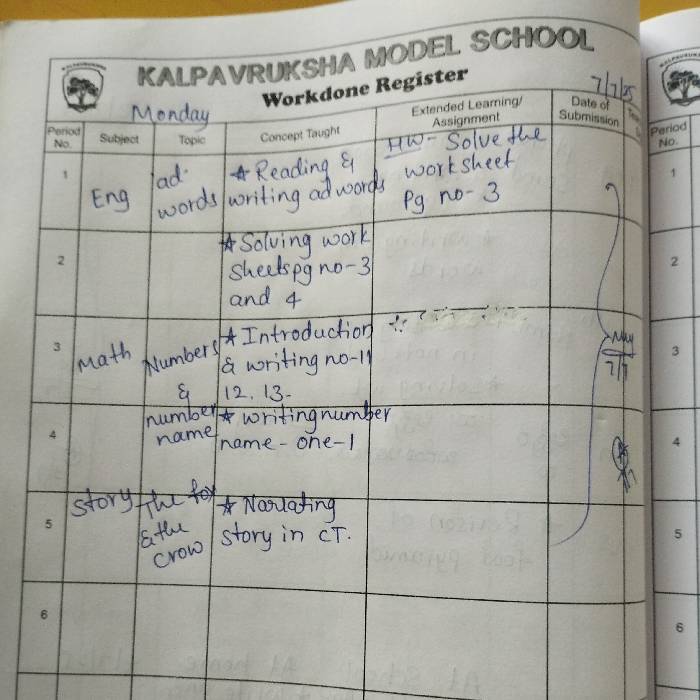 KALPAVRUKSHA MODEL SCHOOL
Workdone Register
7/7/25
Monday
Period No.
Subject
Topic
Concept Taught
Extended Learning/ Assignment
Date of Submission
1
Eng
ad-
words
* Reading &
writing ad words
HW- Solve the
worksheet
Pg no- 3
2
* Solving work
sheets pg no-3
and 4
3
Math
Numbers
&
number
name
* Introduction
& writing no-11
12, 13.
4
* writing number
name - one-1
5
Story
The fox
& the
crow
* Narrating
story in CT.
6
7/7
Period No.
1
2
3
4
5
6